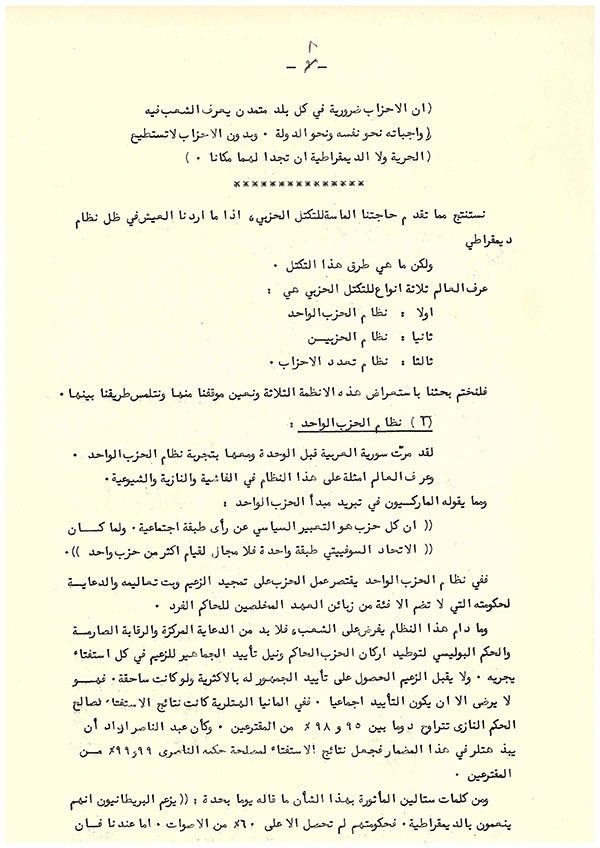 ٨
(ان الاحزاب ضرورية في كل بلد متمدن يعرف الشعب فيه
(واجباته نحو نفسه ونحو الدولة ٠ وبدون الاحزاب لاتستطيع
(الحرية ولا الديمقراطية ان تجدا لهما مكانا ٠ )
××××××××××××××××
نستنتج مما تقدم حاجتنا الماسة للتكتل الحزبي، اذا ما اردنا العيش في ظل نظام
ديمقراطي
ولكن ما هي طرق هذا التكتل ٠
عرف العالم ثلاثة انواع للتكتل الحزبي هي :
اولا : نظام الحزب الواحد
ثانيا : نظام الحزبيـن
ثالثا : نظام تعدد الاحزاب ٠
فلنختم بحثنا باستعراض هذه الانظمة الثلاثة ونعين موقفنا منها ونتلمس طريقنا بينها ٠
(٣) نظام الحزب الواحد :
لقد مرّت سورية العربية قبل الوحدة ومعها بتجربة نظام الحزب الواحد ٠
وعرف العالم امثلة على هذا النظام في الفاشية والنازية والشيوعية ٠
ومما يقوله الماركسيون في تبريد مبدأ الحزب الواحد :
(( ان كل حزب هو التعبير السياسي عن رأى طبقة اجتماعية ٠ ولما كـــان
(( الاتحاد السوفييتي طبقة واحدة فلا مجال لقيام اكثر من حزب واحد )) ٠
ففي نظام الحزب الواحد يقتصر عمل الحزب على تمجيد الزعيم وبث تعاليمه والدعايـة
لحكومته التي لا تضم الا فئة من زبائن العهد المخلصين للحاكم الفرد ٠
وما دام هذا النظام يفرض على الشعب، فلا بد من الدعاية المركزة والرقابة الصارمـة
والحكم البوليسي لتوطيد اركان الحزب الحاكم ونيل تأييد الجماهير للزعيم في كل استفتاء
يجريه ٠ ولا يقبل الزعيم الحصول على تأييد الجمهور له بالاكثرية ولو كانت ساحقة ٠ فهــو
لا يرضى الا ان يكون التأييد اجماعيا ٠ ففي المانيا الهتلرية كانت نتائج الاستفتاء لصالح
الحكم النازى تتراوح دوما بين ٩٥ و ٩٨٪ من المقترعين ٠ وكأن عبد الناصر اراد أن
يبذ هتلر في هذا المضمار فجعل نتائج الاستفتاء لمصلحة حكمه الناصرى ٩٩و٩٩٪ مــن
المقترعين ٠
ومن كلمات ستالين المأثورة بهذا الشأن ما قاله يوما بحدة : ((يزعم البريطانيون انهم
ينعمون بالديمقراطية ٠ فحكومتهم لم تحصل الا على ٦٠٪ من الاصوات ٠ اما عندنا فــان